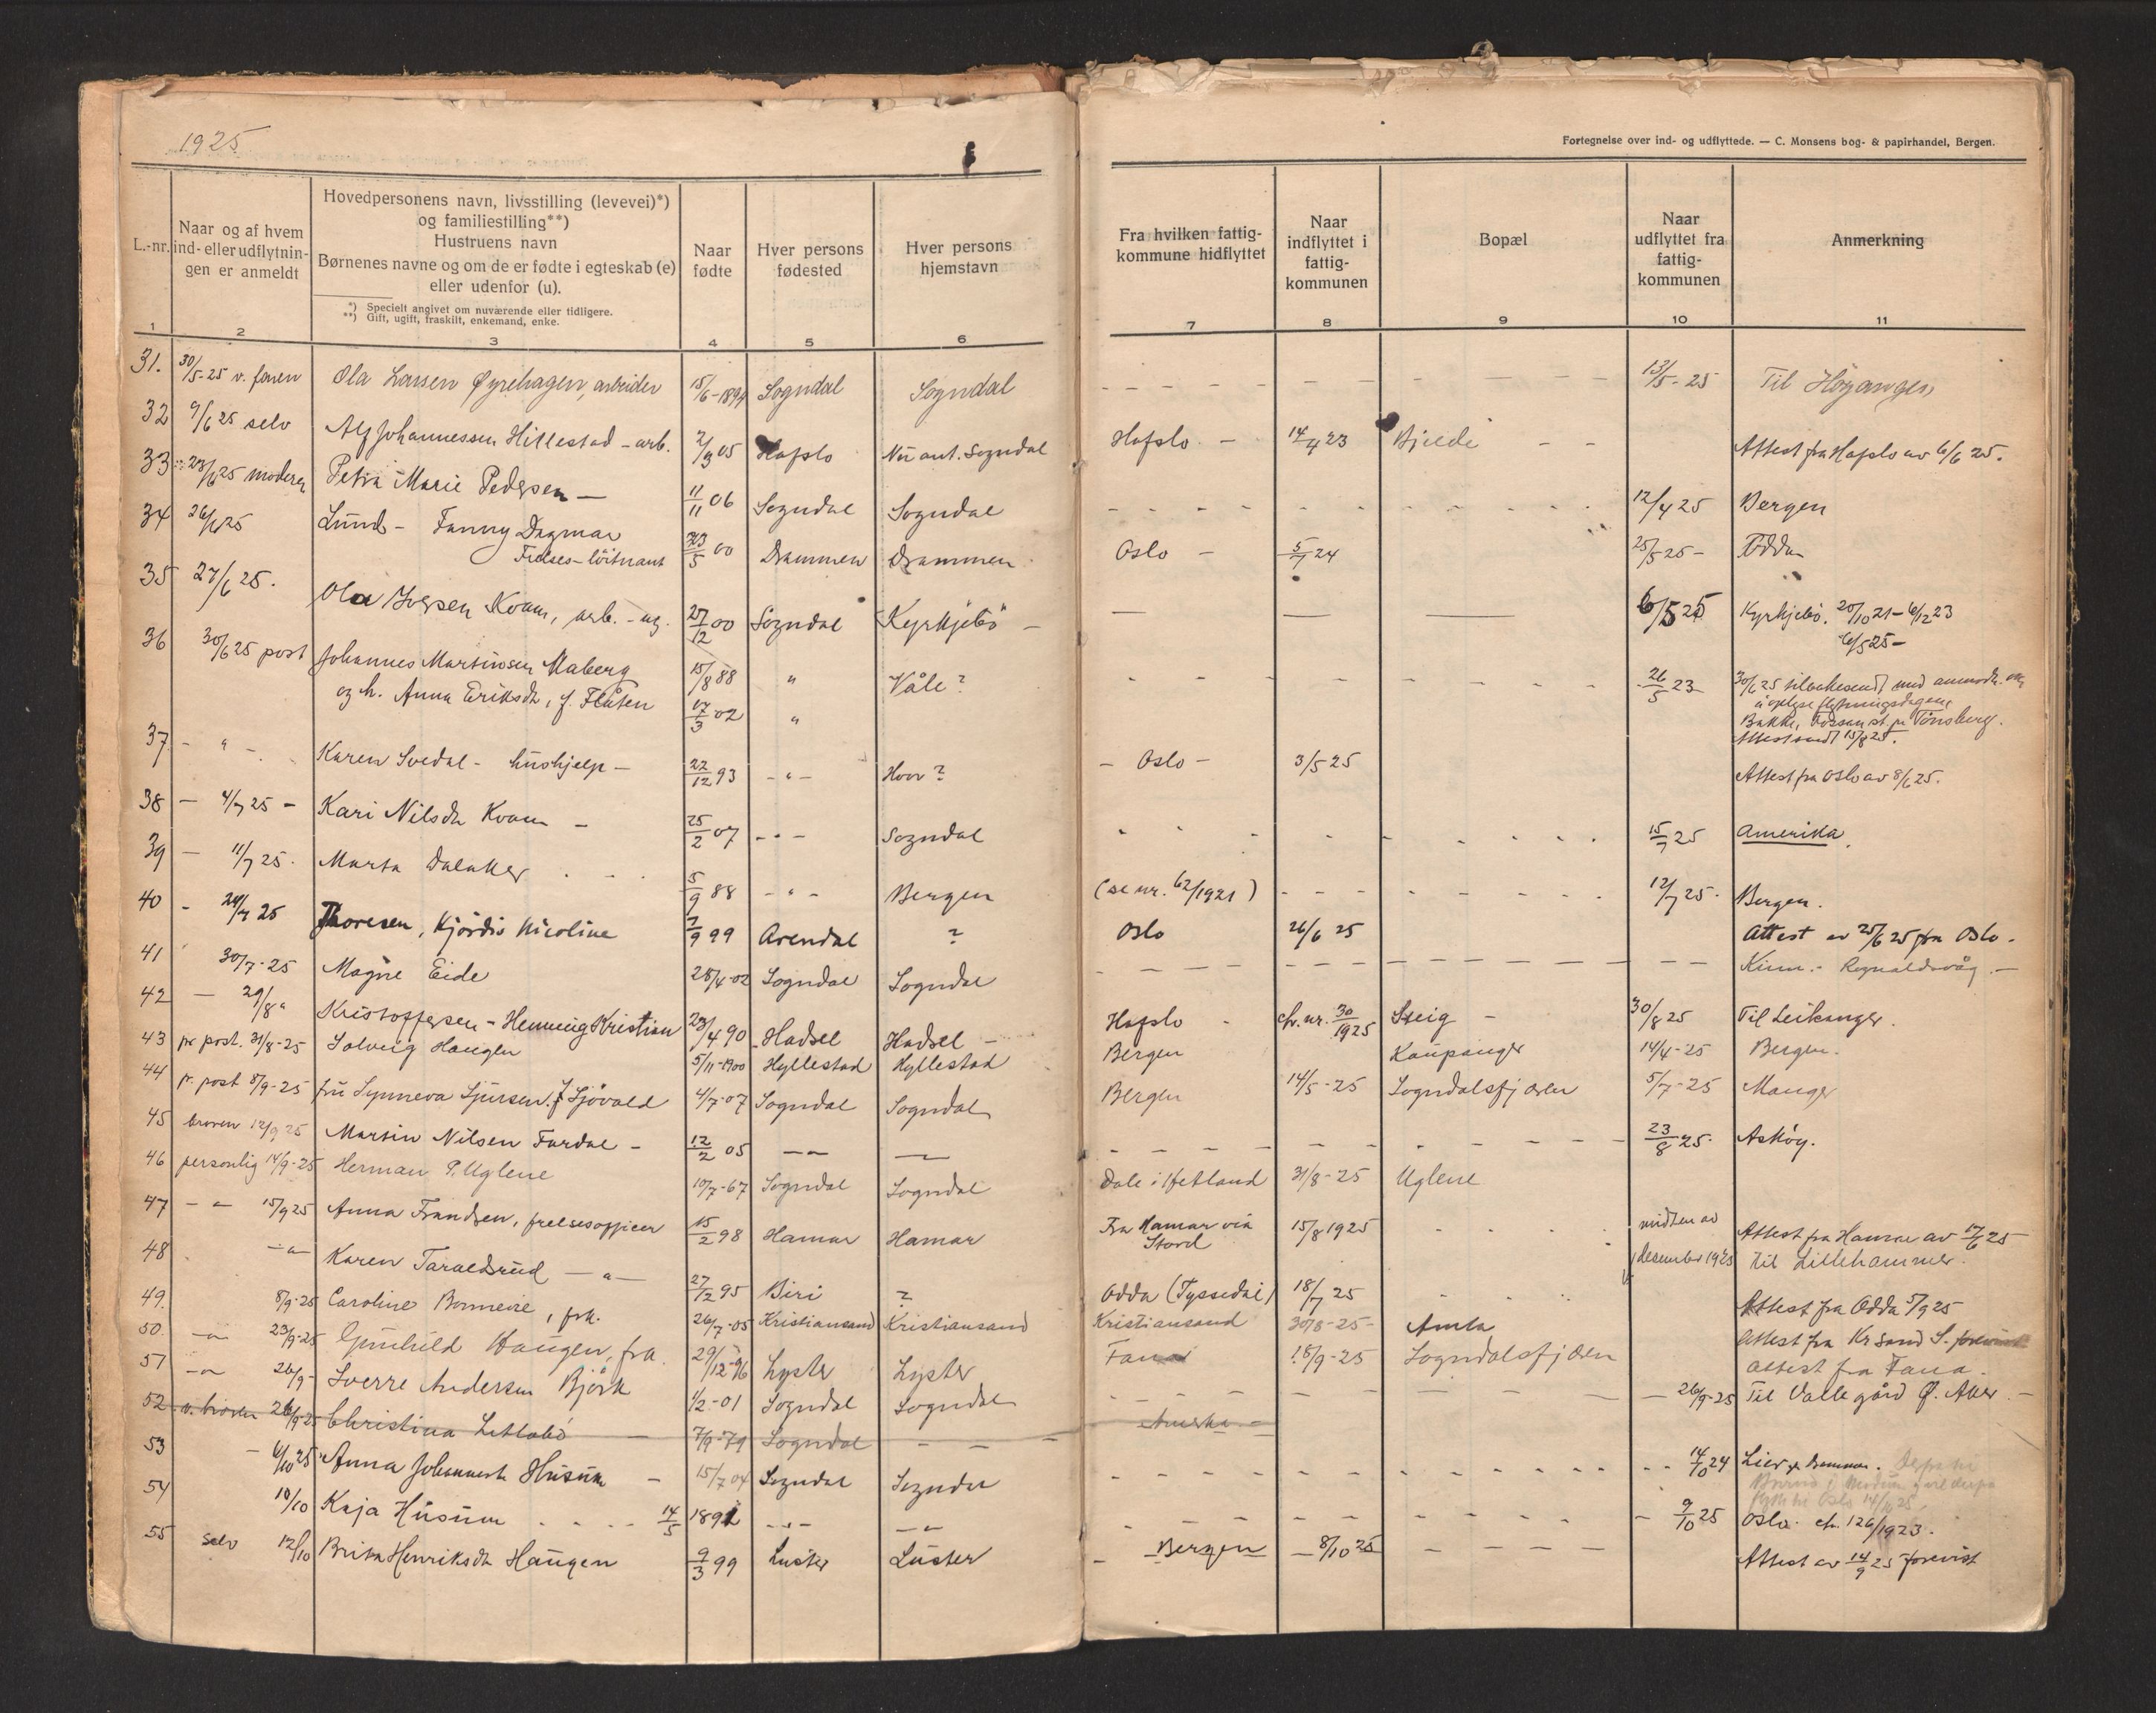 1925
Fortegnelse over ind- og udflyttede. — C. Monsens bog- & papirhandel, Bergen.
L.-nr.
Naar og af hvem
ind- eller udflytnin-
gen er anmeldt
Hovedpersonens navn, livsstilling (levevei)*)
og familiestilling**)
Hustruens navn
Børnenes navne og om de er fødte i egteskab (e)
eller udenfor (u).
*) Specielt angivet om nuværende eller tidligere.
**) Gift, ugift, fraskilt, enkemand, enke.
Naar
fødte
Hver persons
fødested
Hver persons
hjemstavn
Fra hvilken fattig-
kommune hidflyttet
Naar
indflyttet i
fattig-
kommunen
Bopæl
Naar
udflyttet fra
fattig-
kommunen
Anmerkning
1 2 3 4 5 6 7 8 9 10 11
31. 30/5-25 v. faren Ola Larsen Øyrehagen, arbeider 15/6-1894 Sogndal Sogndal - - - 13/5-25 Til Höyanger
32 9/6 25 selv Alf Johannessen Hillestad - arb. 2/3 05 Hafslo Nu ant. Sogndal Hafslo - 14/4 23 Bjelde - - Attest fra Hafslo av 6/6 25.
33 23/6 25 moderen Petra Marie Pedersen — 11/11 06 Sogndal Sogndal - - - 12/4 25 Bergen
34 26/6 25 Lund - Fanny Dagmar 23/5 00 Drammen Drammen Oslo - 5/7 24 25/5 25 - Odda
Frelses-löitnant
35 27/6 25. Ola Iversen Kvam, arb. - ug. 27/12 00 Sogndal Kyrkjebö - — — — 6/5 25 Kyrkjebö. 20/10 21 - 6/12 23
6/5 25 -
36 30/6 25 post Johannes Martinsen Maberg 15/8 88 " Våle? - - - 26/5 23 30/6 25 tilbakesendt med anmodn. om
og h. Anna Eriksdtr, f. Flåten 17/3 02 " å oplyse flytningsdagen
Bakke, Fossan st. pr Tönsberg.
Attest sendt 15/8 25.
37 - " - Karen Svedal - hushjelp - 22/12 93 - " - Hvor? - Oslo - 3/5 25 Attest fra Oslo av 8/6 25.
38 - 4/7 25 - Kari Nilsdtr Kvam - 25/2 07 - " - Sogndal - - - 15/7 25 Amerika.
39 - 11/7 25. Marta Dalaker . . . 5/9 88 - " - Bergen (se nr. 62/1921) - - - 12/7 25. Bergen.
40 - 24/7 25 Thoresen, Hjördis Nicoline 7/9 99 Arendal ? Oslo 26/6 25 Attest av 25/6 25 fra Oslo.
41 30/7-25 Magne Eide 28/4-02 Sogndal Sogndal - - - Kinn. - Rognaldsvåg. -
42 - 29/8 " Kristoffersen - Henning Kristian 23/4 90 Hadsel Hadsel - Hafslo - cfr. nr. 30/1925 Steig - 30/8 25 Til Leikanger.
43 pr post. 31/8-25 Solveig Haugen 5/11-1900 Hyllestad Hyllestad Bergen Kaupanger 14/4-25 Bergen.
44 pr. post 8/9-25 fru Synneva Sjursen f. Sjövold 4/7-07 Sogndal Sogndal Bergen 14/5-25 Sogndalsfjøren 5/7-25 Manger
45 broren 12/9 25 Martin Nilsen Fardal - 12/2 05 — " — — - - - 23/8 25. Asköy.
46 personlig 14/9-25 Herman P. Uglene 10/7-67 Sogndal Sogndal Dale i Hetland 31/8-25 Uglene
47 - " - 15/9 25 Anna Frandsen, frelsesofficer 15/2 98 Hamar Hamar Fra Hamar via 15/8 1925 . . . midten av Attest fra Hamar av 17/6 25
Stord desember 1925 til Lillehammer.
48 - " - Karen Taraldsrud - " - 27/12 95 Biri ? Odda (Tyssedal) 18/7 25 Attest fra Odda 5/9 25
49. 8/9-25 Caroline Bonnevie, frk. 26/7-05 Kristiansand Kristiansand Kristiansand 30/8-25 - Amla Attest fra Kr.sand S.
50. - " 23/9-25 Gunhild Haugen, frk. 29/12-96 Lyster Lyster Fana 18/9-25 Sogndalsfjøren attest fra Fana.
51 - " 26/9- Sverre Andersen Björk 1/2-01 Sogndal Sogndal - - - 26/9-25 Til Valle gård Ø. Aker. -
52 v. broder 26/9-25 Christina Letlabö - 7/9-79 Sogndal - - - Amerika -
53 - 6/10 25 Anna Johannesdtr Husum - 15/7 04 Sogndal Sogndal - - - 14/10 24 Lier pr Drammen.
54 10/10 Kaja Husum . . . . 14/5 1891 - " - - " - - - - 9/10 25 Oslo. cfr. 126/1923.
55 selv 12/10 Brita Henriksdtr Haugen 9/3 99 Luster Luster - Bergen - 8/10 25 - - - Attest av 14/9 25 forevist